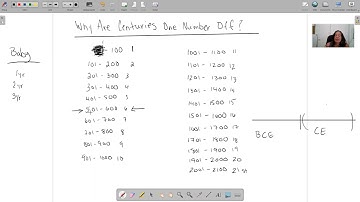 Why Are Centuries One Number Off?
Baby
1yr
2yr
3yr
- 100 1
101 - 200 2
201 - 300 3
301 - 400 4
401 - 500 5
501 - 600 6
601 - 700 7
701 - 800 8
801 - 900 9
901 - 1000 10
1001 - 1100 11
1101 - 1200 12
1201 - 1300 13
1301 - 1400 14
1401 - 1500 15
1501 - 1600 16
1601 - 1700 17
1701 - 1800 18
1801 - 1900 19
1901 - 2000 20
2001 - 2100 21st
BCE
CE